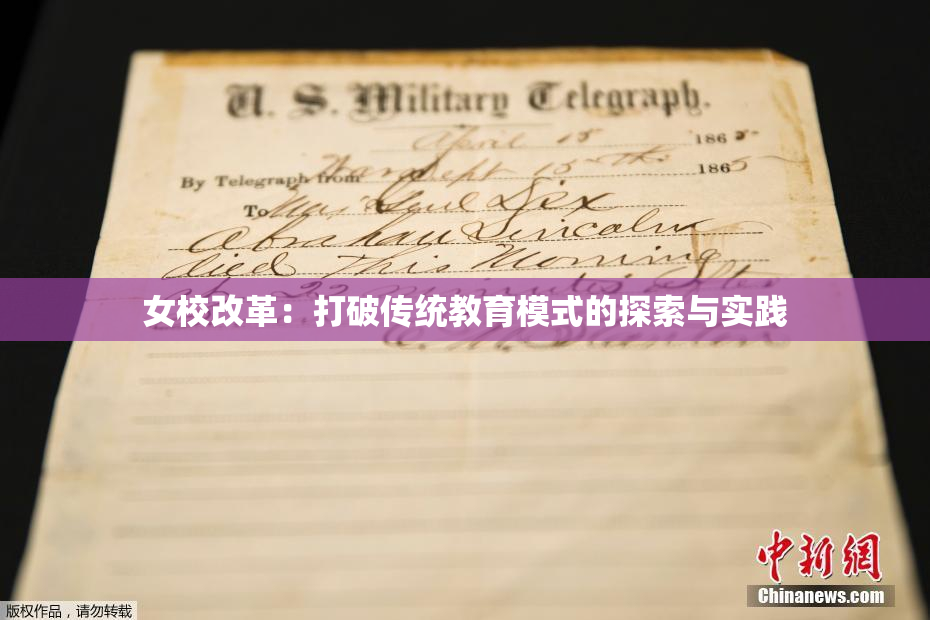 U. S. Military Telegraph.
April 15 1865
By Telegraph from War Dept 15th 1865
To Maj Genl Dix
Abraham Lincoln
died This Morning
at 22 minutes after
女校改革：打破传统教育模式的探索与实践
E. M. Stanton
中新网
Chinanews.com
版权作品，请勿转载